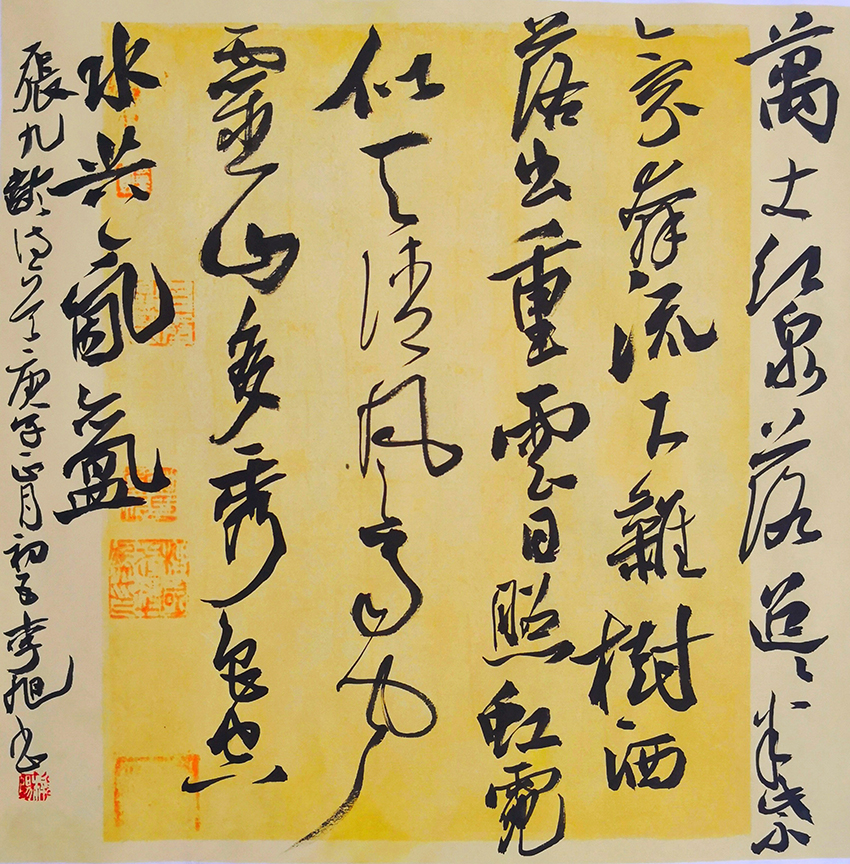 萬丈红泉落迢迢半紫
氛奔流下雜樹洒
落出重雲日照虹霓
似天清风雨闻
靈山多秀色空
水共氤氲
張九龄诗一首庚子正月初五李旭书